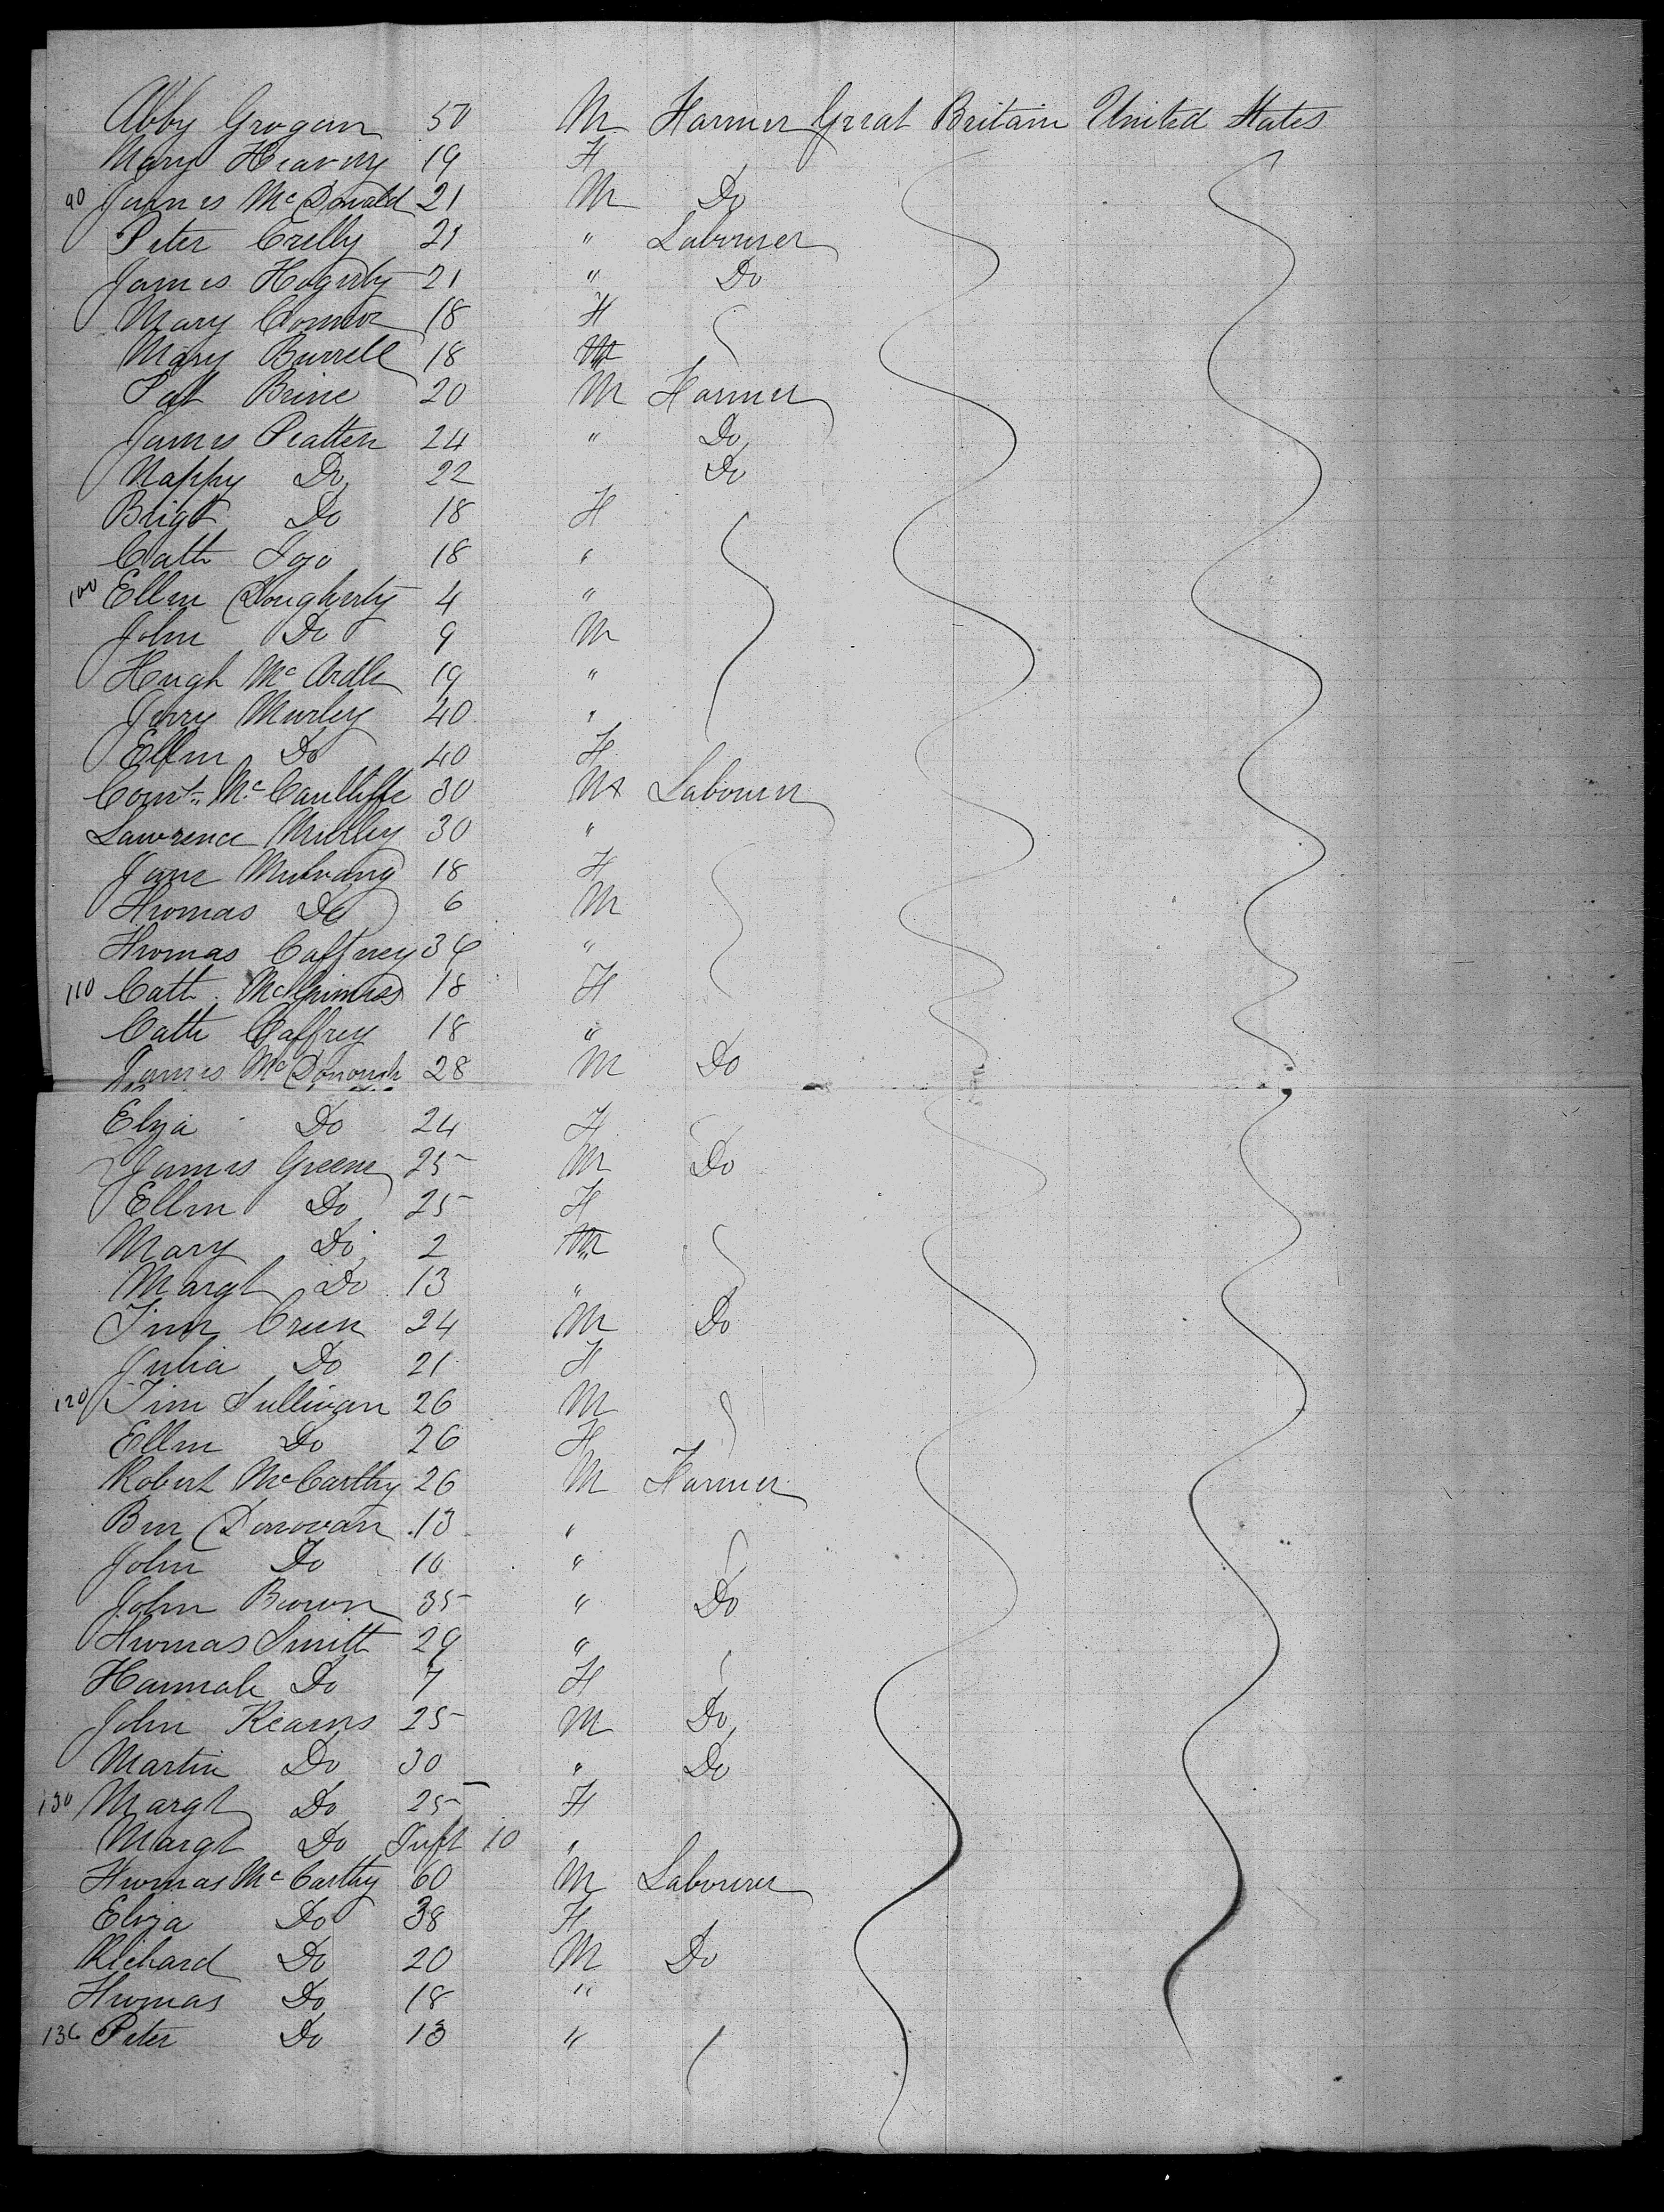 Abby Grogan 50 M Farmer Great Britain United States
Mary Heavny 19 F
90 James McDonald 21 M Do
Peter Crelly 21 " Labourer
James Hagerty 21 " Do
Mary Connor 18 F
Mary Burrell 18
Pat Brine 20 M Farmer
James Peatten 24 " Do
Nappy Do 22 Do
Brigt Do 18 F
Cath 18 "
100 Ellen Dougherty 4 "
John Do 9 M
Hugh McArdle 19 "
Jerry Murley 40 "
Ellen Do 40 F
McCaulliffe 30 M Labourer
Lawrence Murley 30 "
Jane Mulvany 18 F
Thomas Do 6 M
Thomas Caffney 36 "
110 Cath McGinniss 18 F
Cath Caffrey 18 "
James McDonough 28 M Do
Eliza Do 24 F
James Greene 25 M Do
Ellen Do 25 F
Mary Do 2
Margt Do 13 "
Tim Creen 24 M Do
Julia Do 21 F
120 Tim Sullivan 26 M
Ellen Do 26 F
Robert McCarthy 26 M Farmer
Ben Donovan 13 "
John Do 10 "
John Brown 35 " Do
Thomas Smith 29 "
Hannah Do 7 F
John Kearns 25 M Do
Martin Do 30 " Do
130 Margt Do 25 F
Margt Do Inft 10 "
Thomas McCarthy 60 M Labourer
Eliza Do 38 F
Richard Do 20 M Do
Thomas Do 18 "
136 Peter Do 13 "